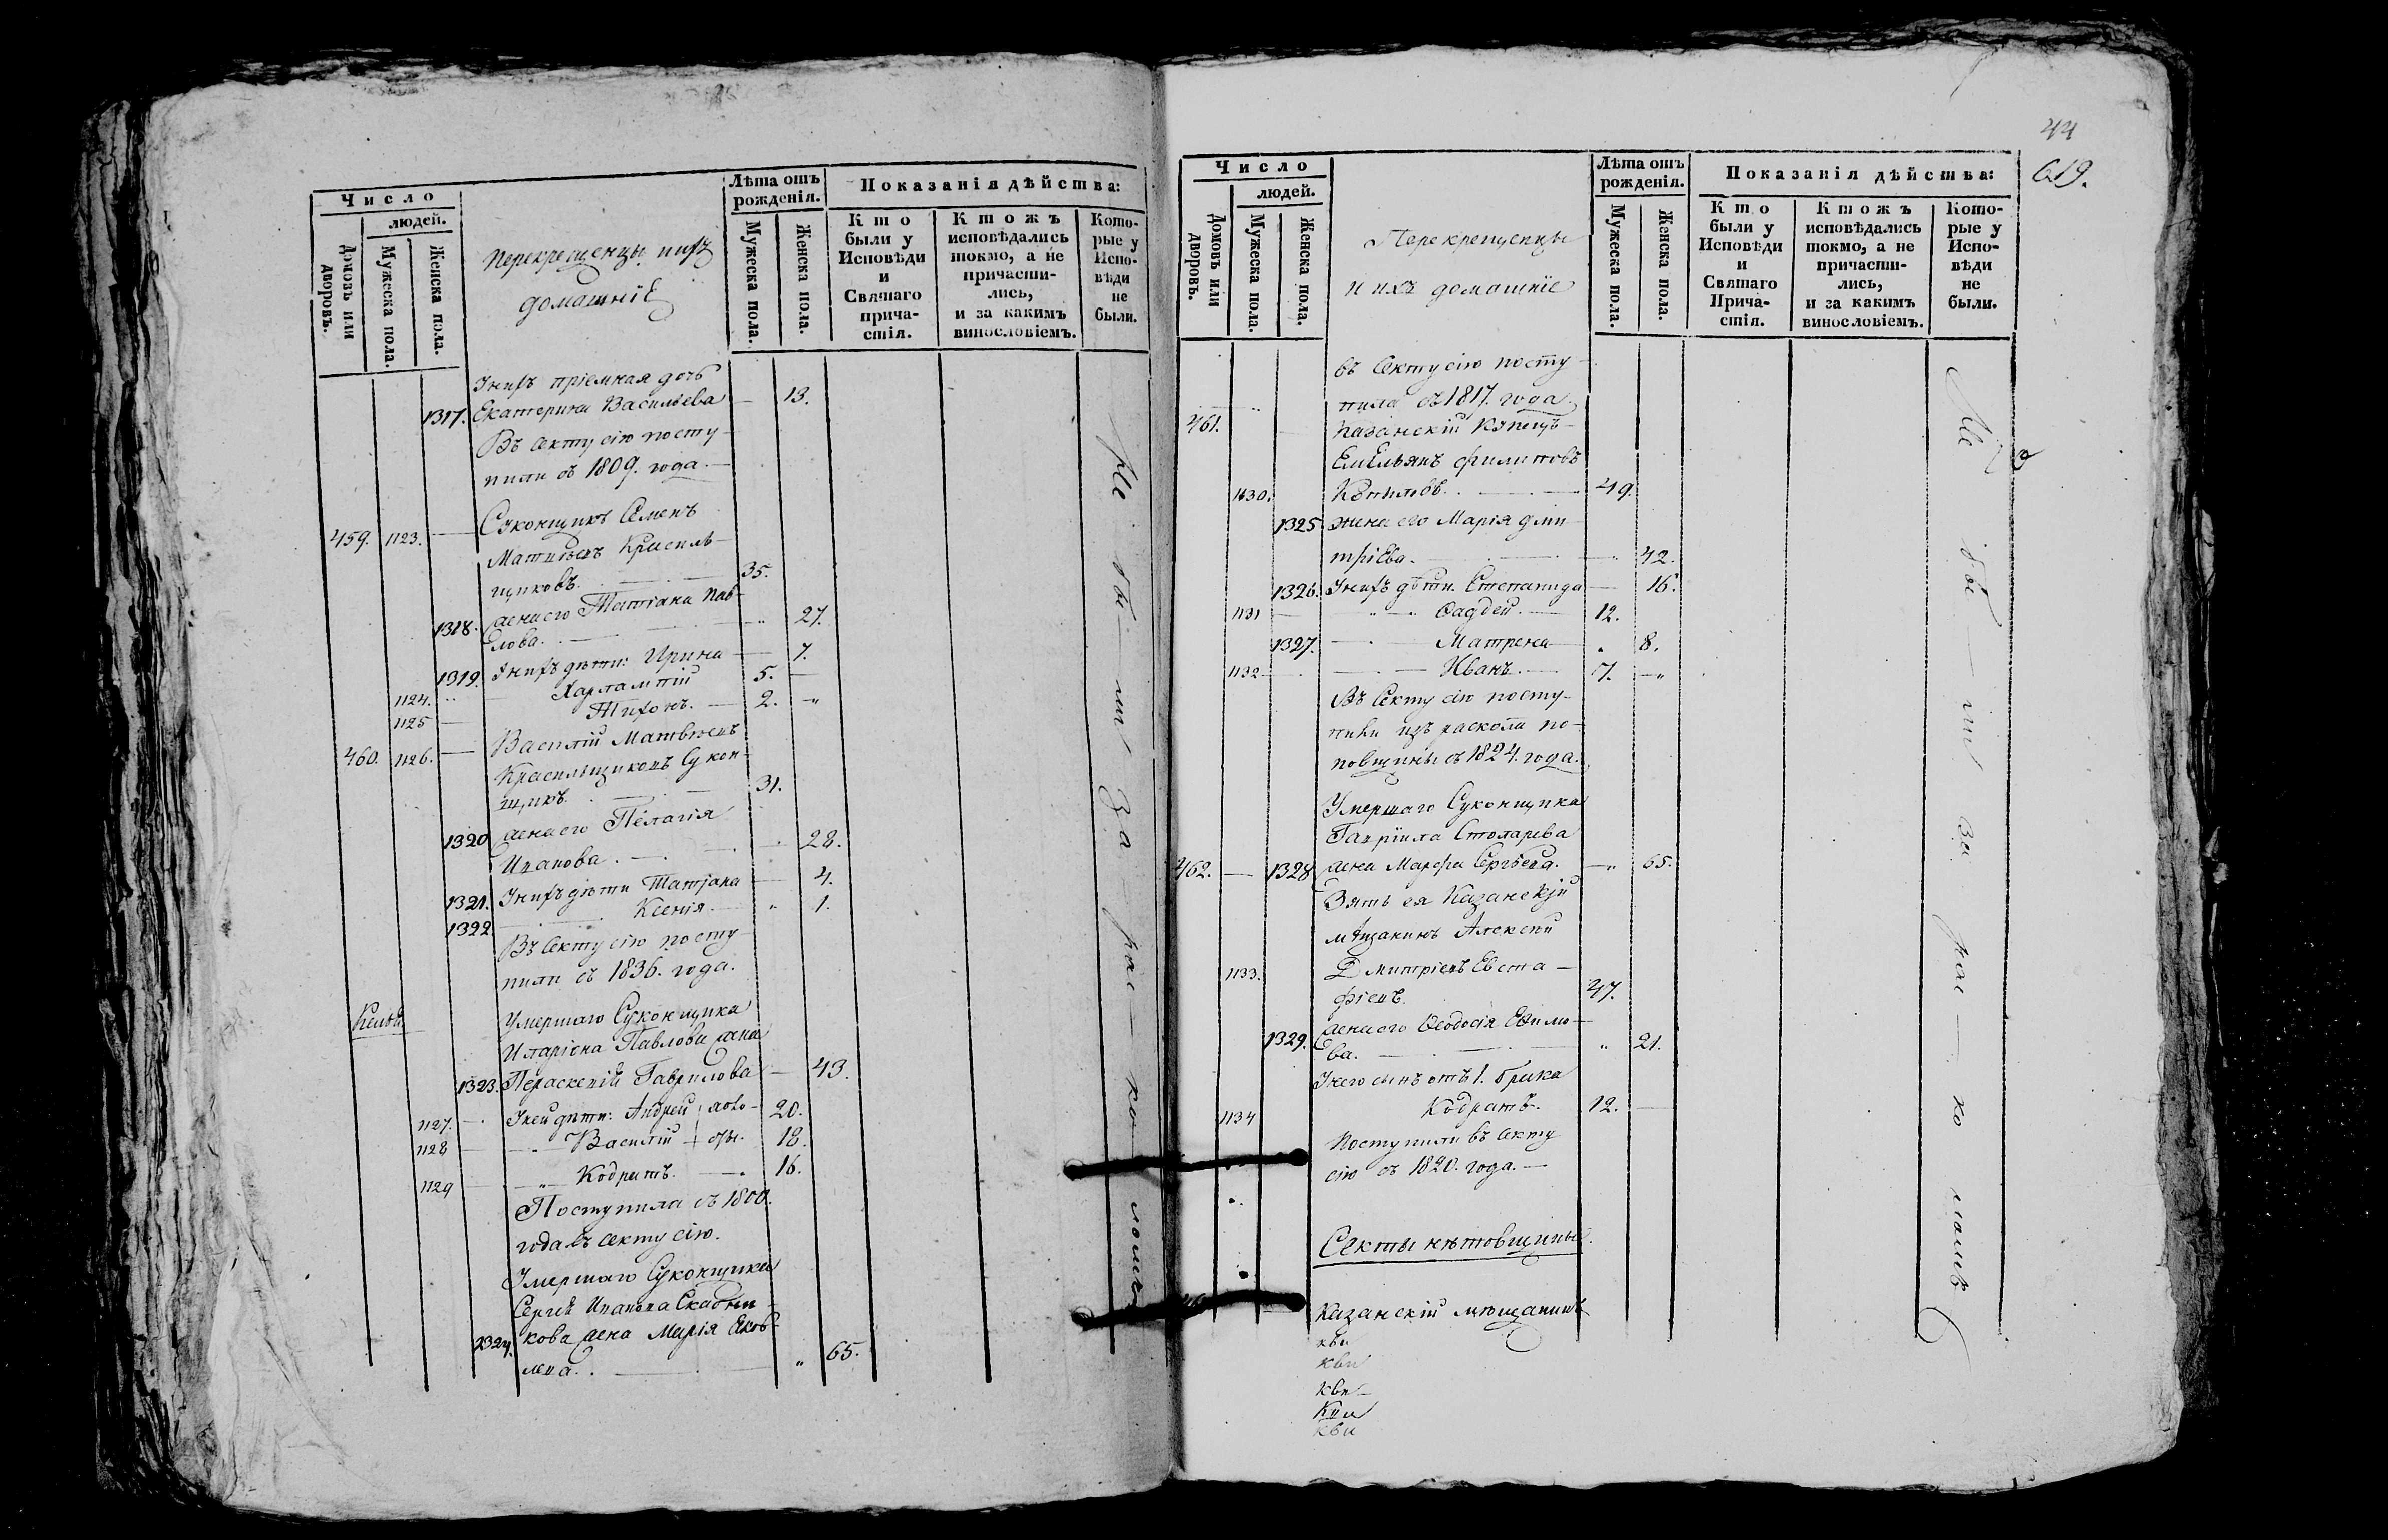 Число
людей.
Домовъ или дворовъ.
Мужеска пола.
Женска пола.
Перекрещенцы ихъ
домашніе
Лѣта отъ рожденія.
Мужеска пола.
Женска пола.
Показанія дѣйства:
Кто были у Исповѣди и Святаго причастія.
Ктожъ исповѣдались токмо, а не причастились, и за какимъ винословіемъ.
Которые у Исповѣди не были.
У нихъ пріемная дочь
1317. Екатерина Васильева — 13.
Въ секту сію посту-
пили съ 1809. года. —
459. 1123. — Суконщикъ Семенъ
Матвѣевъ Красиль-
щиковъ. — 35.
1318. жена его Татіана Пав-
лова. — „ 27.
1319. У нихъ дѣти: Ирина — 7.
1124. Харлампій 5. —
1125 — Тихонъ. — 2. „
460. 1126. — Василій Матвѣевъ
Красильщиковъ Сукон-
щикъ. — 31.
1320 жена его Пелагія
Иванова. — 28.
1321. У нихъ дѣти Татіана — 4.
1322 Ксенія — „ 1.
Въ секту сію посту-
пили съ 1836. года.
Умершаго Суконщика
Иларіона Павлова жена
1323. Параскевія Гаврилова — 43.
1127. У ней дѣти: Андрей 20.
1128 — Василій 18.
1129 „ Кодратъ. — 16.
Поступила съ 1800.
года въ секту сію.
Умершаго Суконщика
Сергѣя Иванова
1324. кова жена Марія Яков-
лева. — „ 65.
Не бы — ли за рас — ко — ломъ
44
619.
Число
людей.
Домовъ или дворовъ.
Мужеска пола.
Женска пола.
Перекрещенцы
и ихъ домашніе
Лѣта отъ рожденія.
Мужеска пола.
Женска пола.
Показанія дѣйства:
Кто были у Исповѣди и Святаго Причастія.
Ктожъ исповѣдались токмо, а не причастились, и за какимъ винословіемъ.
Которые у Исповѣди не были.
въ секту сію посту-
пила съ 1817. года.
461. Казанскій Купецъ —
Емельянъ Филиповъ
1130. 49.
1325 жена его Марія Дми-
тріева. — 42.
1326. У нихъ дѣти. Степанида — 16.
1131 — Фаддей. — 12.
1327. — Матрена — „ 8.
1132 — Иванъ. — 7. — „
Въ Секту сію посту-
пили изъ раскола по-
повщины съ 1824. года.
Умершаго Суконщика
Гавріила Столарева
462. — 1328 жена Марфа Сергѣева. — „ 65.
Зять ея Казанскій
мѣщанинъ Алексѣй
1133. Дмитріевъ Евста —
фіевъ. 47.
1329. жена его Ѳеодосія Ефимо-
ва. — „ 21.
У него сынъ отъ 1. брака
1134 Кодратъ. 12. —
Поступили въ секту
сію съ 1820. года. —
Секты нѣтовщины.
Казанскій мѣщанинъ
кви
кви
кви
кви
кви
Не бы — ли за рас — ко ломъ